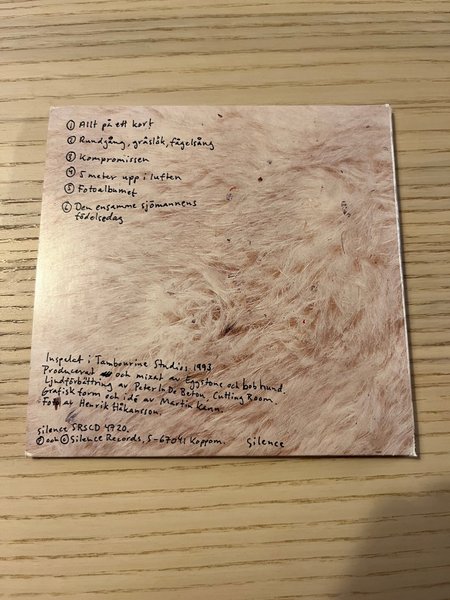 ① Allt på ett kort
② Rundgång, gräslök, fågelsång
③ Kompromissen
④ 5 meter upp i luften
⑤ Fotoalbumet
⑥ Den ensamme sjömannens
födelsedag
Inspelat i Tambourine Studios 1993
Producerat och mixat av Eggstone och bob hund.
Ljudförbättring av Peter In De Betou, Cutting Room.
Grafisk form och idé av Martin Kann.
Foto av Henrik Håkansson.
Silence SRSCD 4720.
Ⓟ och © Silence Records, S-67041 Koppom.
Silence